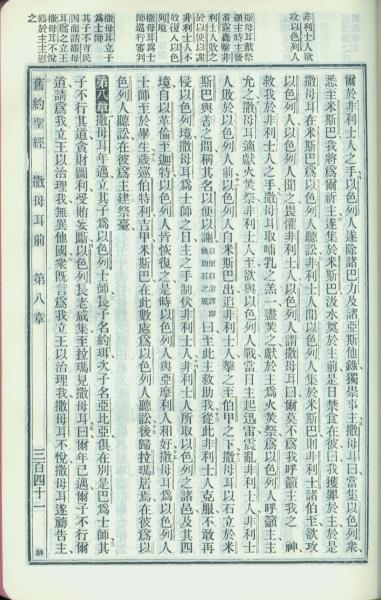 非利士人欲
攻以色列人
撒母耳獻祭
爾於非利士人之手以色列人遂除諸巴力及諸亞斯他錄獨崇事主撒母耳曰當集以色列衆
悉至米斯巴我將爲爾祈主遂集於米斯巴汲水奠於主前是日禁食在彼曰我獲罪於主於是
撒母耳在米斯巴爲以色列人聽訟非利士人聞以色列人集於米斯巴非利士諸伯至欲攻
以色列人以色列人聞之畏懼非利士人以色列人謂撒母耳曰爾莫不爲我呼籲主我之 神
救我於非利士人之手撒母耳取哺乳之羔一盡焚之獻於主爲火焚祭爲以色列人呼籲主主
允之撒母耳適獻火焚祭非利士人至欲與以色列人戰當日主起迅雷震亂非利士人非利士
人敗於以色列人前以色列人自米斯巴出追非利士人擊之至伯甲之下撒母耳以石立於米
斯巴與善之間稱其名以便以謝以便以謝譯即救助石之義曰至此主救助我從此非利士人克服不敢再
侵以色列境撒母耳爲士師之日主之手制伏非利士人非利士人所取以色列之諸邑及其四
境自以革倫至迦特以色列人皆恢復之是時以色列人與亞摩利人相好撒母耳爲以色列人
士師至於畢生歲巡伯特利吉甲米斯巴在此數處爲以色列人聽訟後歸拉瑪居焉在彼爲以
色列人聽訟在彼爲主建祭臺
撒母耳立子
爲士師
其子不肯民
因而請撒母
耳爲之立王
撒母耳不悅
禱於主主慰
之
第八章撒母耳年邁立其子爲以色列士師長子名約珥次子名亞比亞俱在別是巴爲士師其
子不行其道貪財圖利受賄妄斷以色列長老咸集至拉瑪見撒母耳曰爾年已邁爾子不行爾
道請爲我立王以治理我無異他國衆旣言爲我立王以治理我撒母耳不悅撒母耳遂禱告主
舊約聖經 撒母耳前 第八章 三百四十一